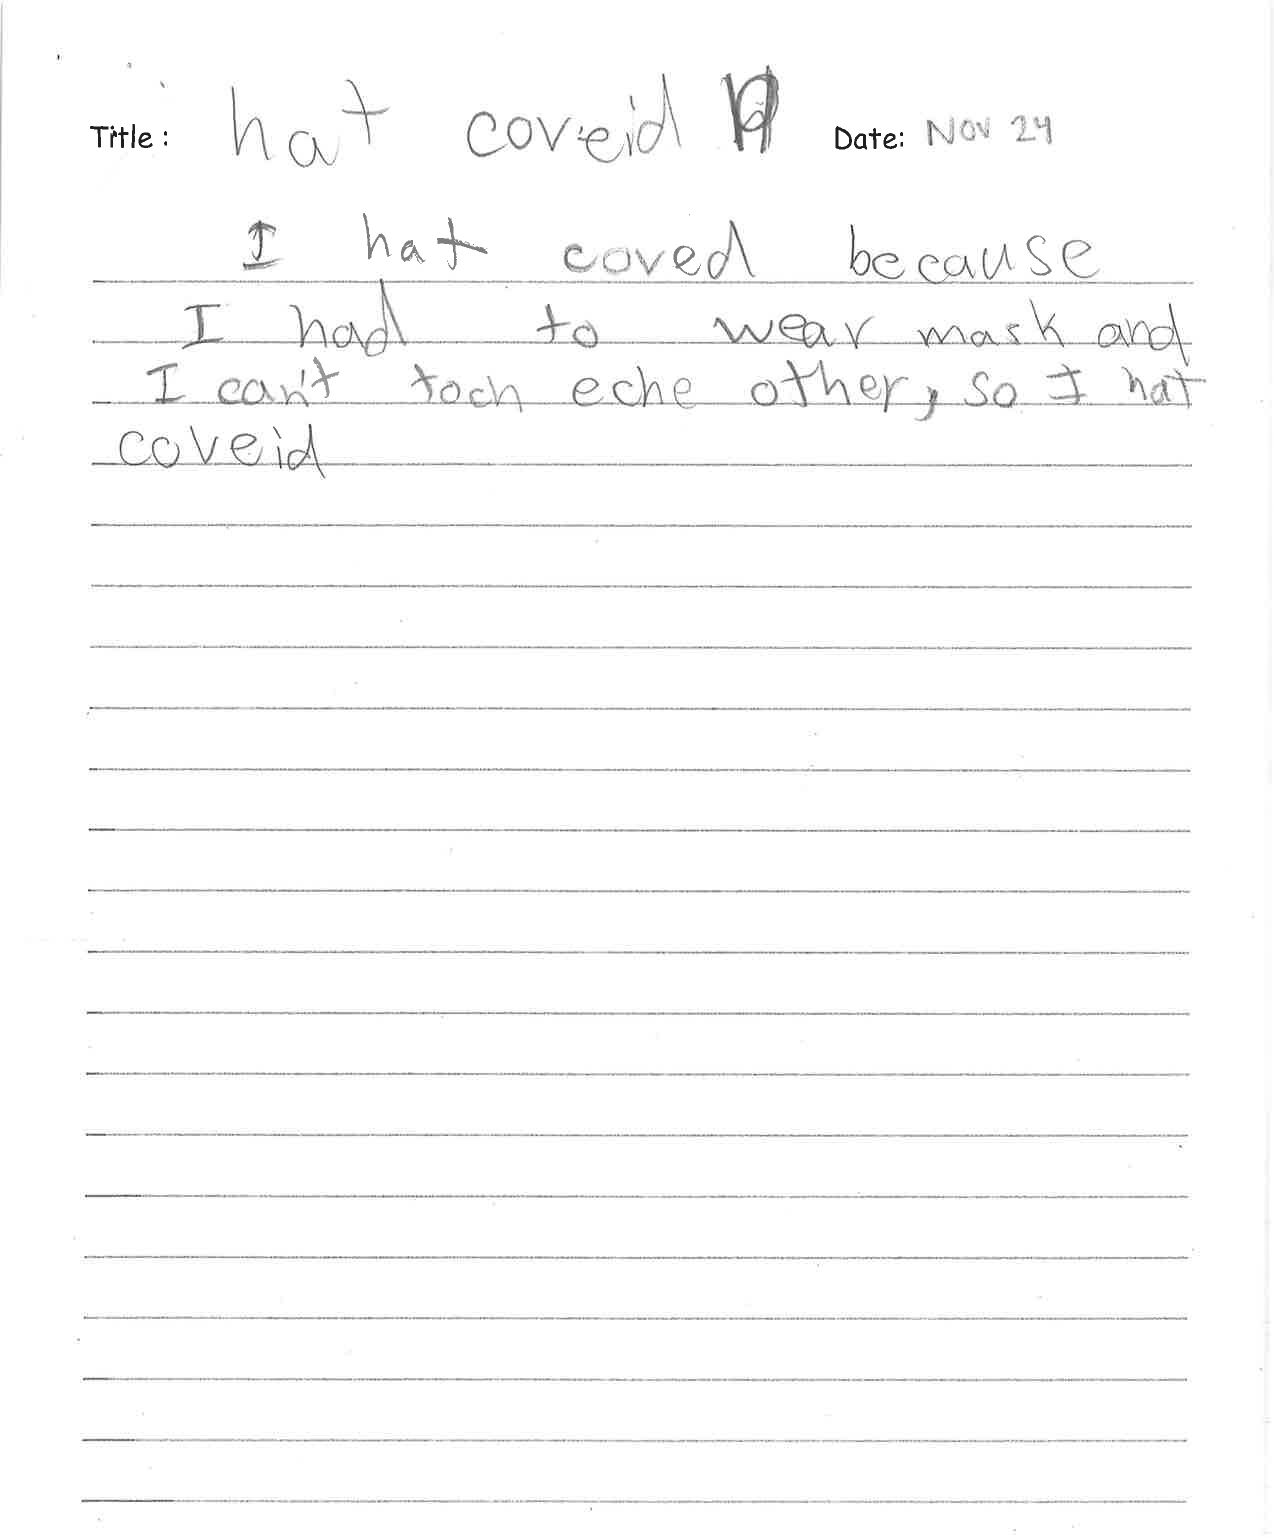 Title: hat coveid Date: Nov 24
I hat coved because
I had to wear mask and
I can't toch eche other, so I hat
coveid